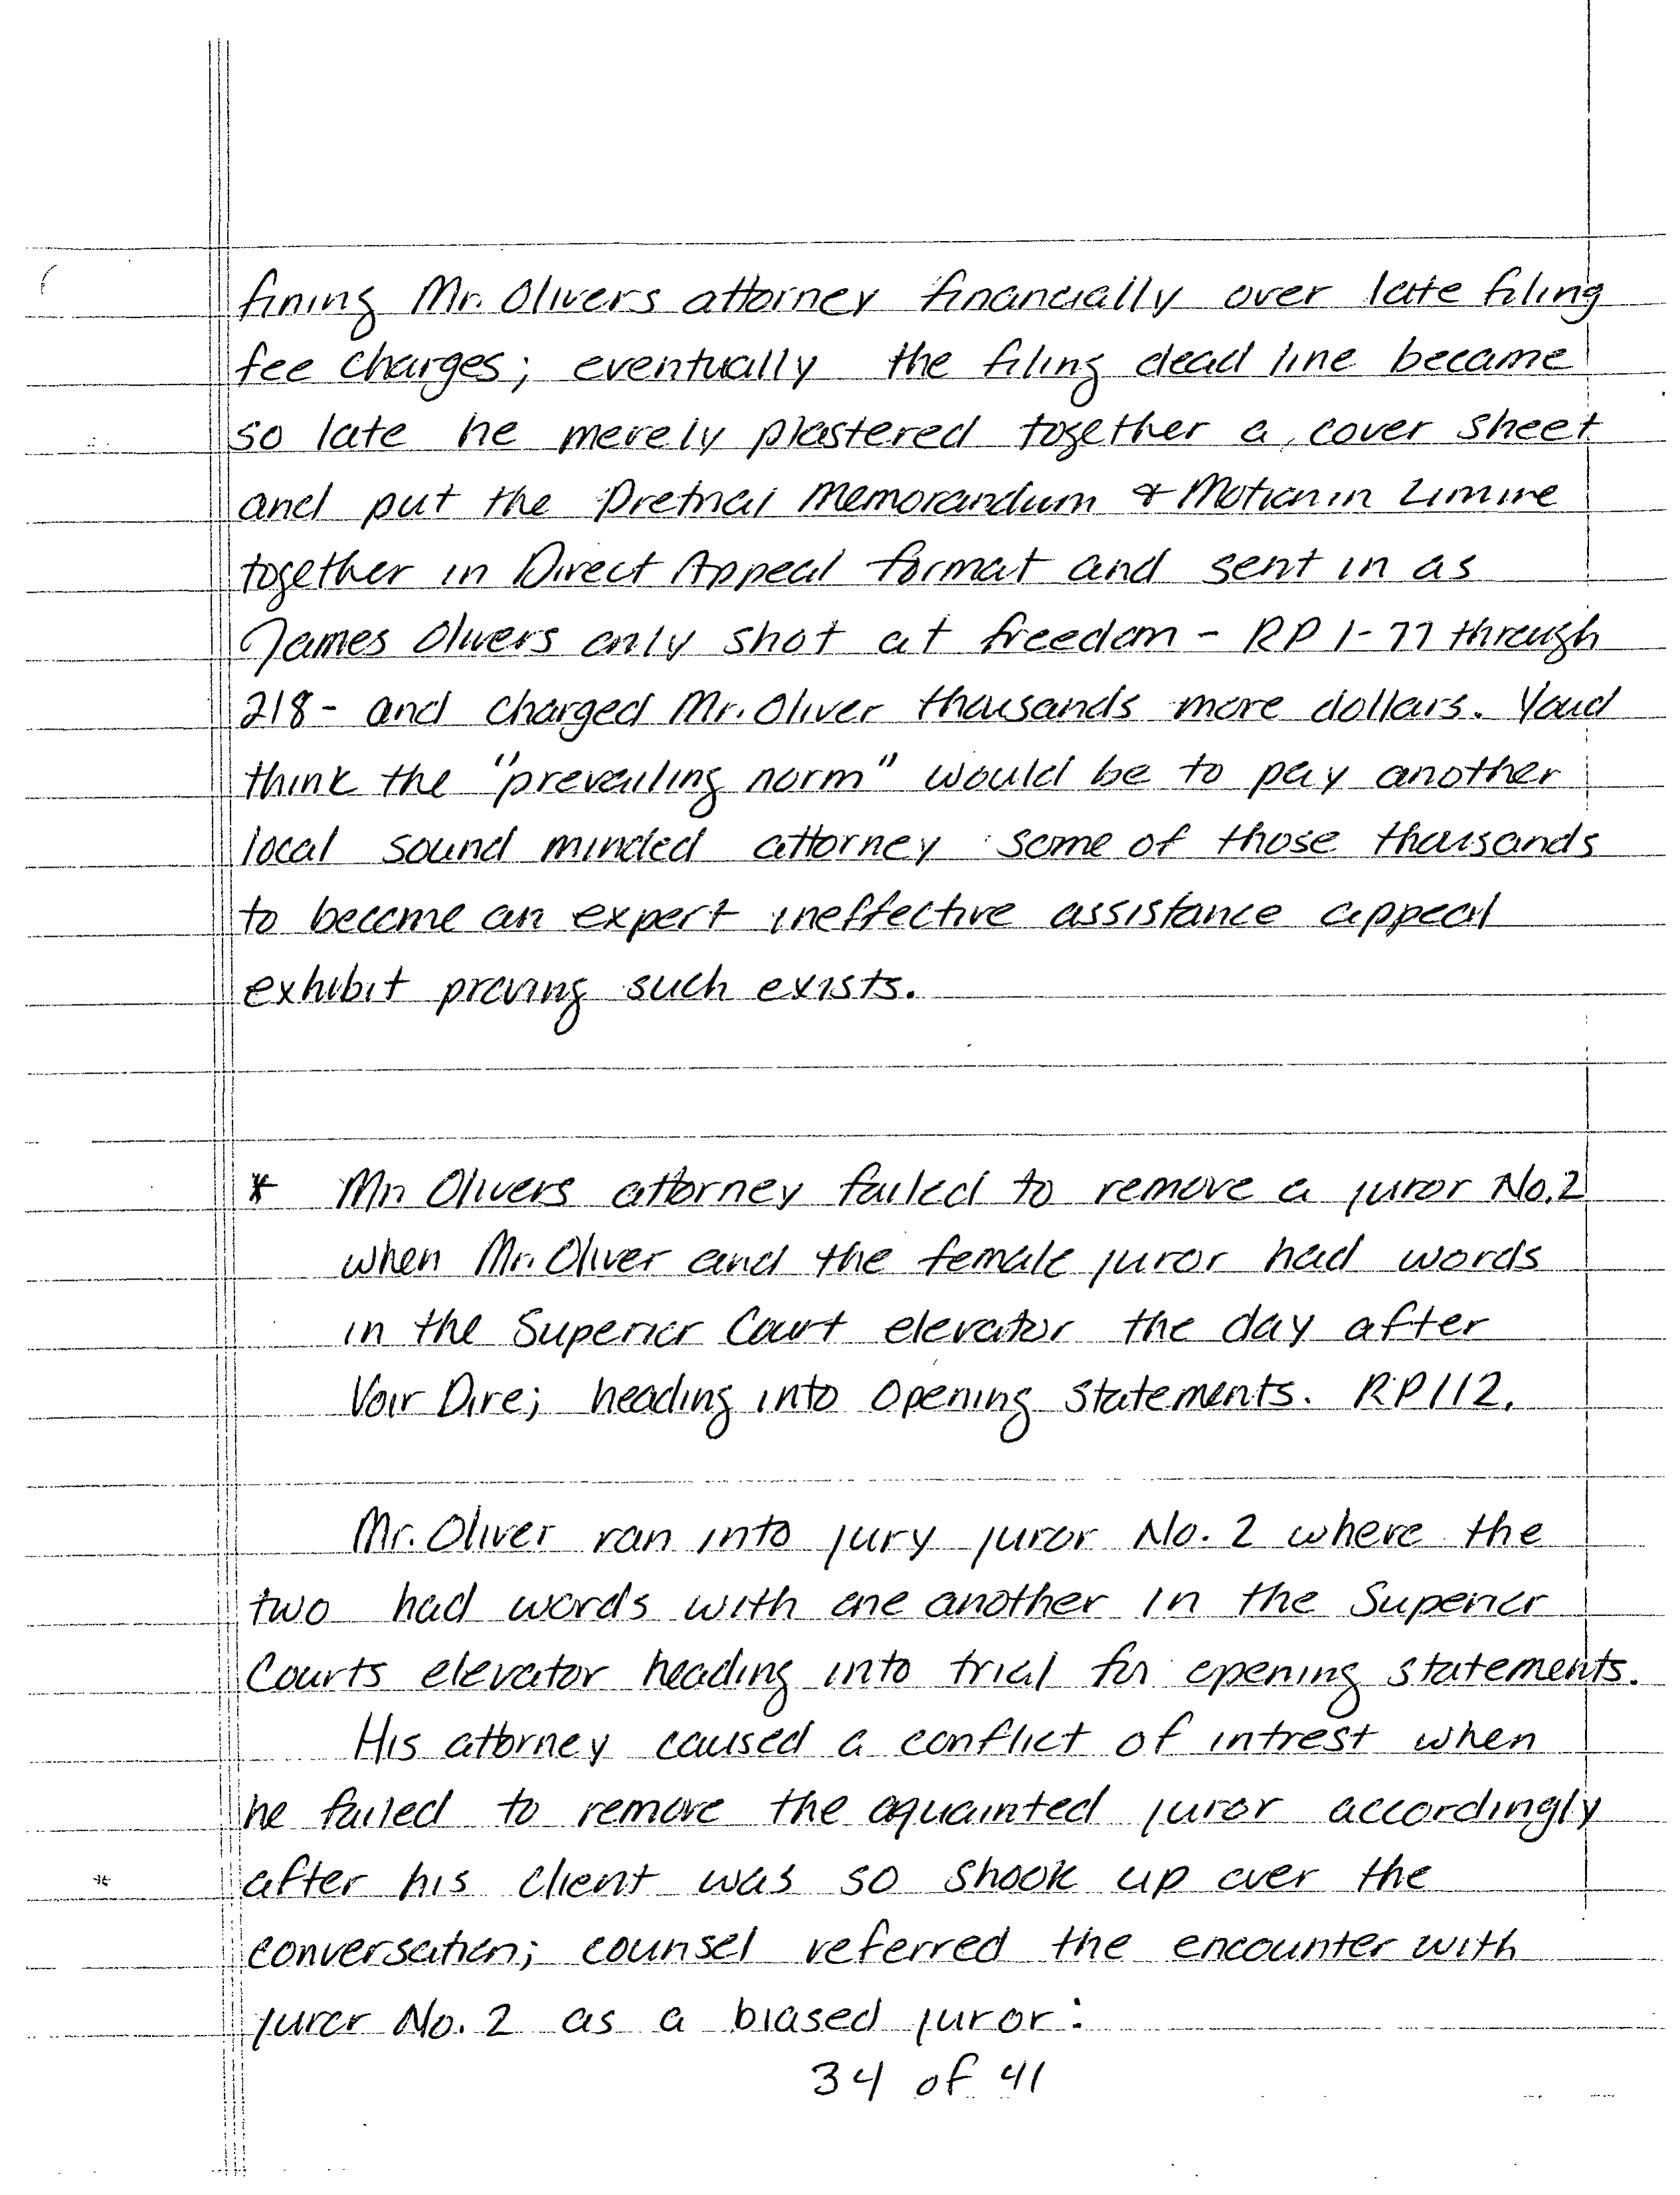 fining Mr. Olivers attorney financially over late filing
fee charges; eventually the filing dead line became
so late he merely plastered together a cover sheet
and put the Pretrial Memorandum & Motion in Limine
together in Direct Appeal format and sent in as
James Olivers only shot at freedom - RP 1-77 through
218 - and charged Mr. Oliver thousands more dollars. Youd
think the "prevailing norm" would be to pay another
local sound minded attorney some of those thousands
to become an expert ineffective assistance appeal
exhibit proving such exists.
* Mr. Olivers attorney failed to remove a juror No. 2
when Mr. Oliver and the female juror had words
in the Superior Court elevator the day after
Voir Dire; heading into opening statements. RP 112.
Mr. Oliver ran into jury juror No. 2 where the
two had words with one another in the Superior
Courts elevator heading into trial for opening statements.
His attorney caused a conflict of intrest when
he failed to remove the aquainted juror accordingly
* after his client was so shook up over the
conversation; counsel referred the encounter with
juror No. 2 as a biased juror:
34 of 41